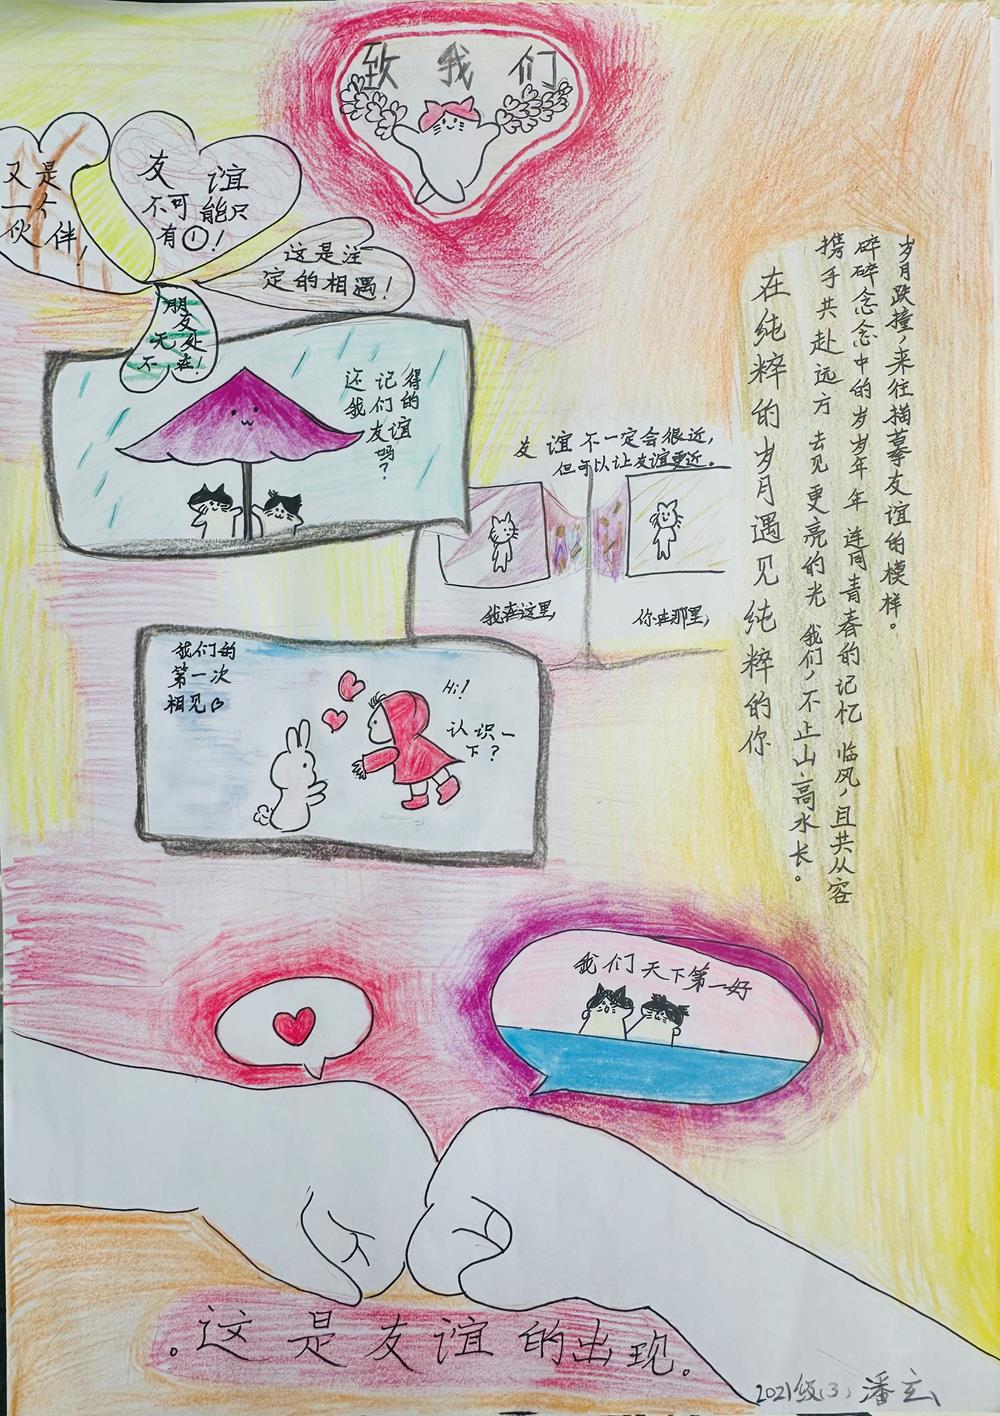 致我们
又是
一个
伙伴!
友谊
不可能只
有①!
这是注
定的相遇!
朋友
无处
不在!
还记得
我们的
友谊
吗?
友谊不一定会很近,
但可以让友谊更近。
我在这里,
你在那里,
我们的
第一次
相见
Hi!
认识一
下?
岁月跌撞,来往描摹友谊的模样。
碎碎念念中的岁岁年年 连同青春的记忆 临风,且共从容
携手共赴远方 去见更亮的光 我们,不止山高水长。
在纯粹的岁月遇见纯粹的你
我们天下第一好
。这是友谊的出现。
2021级(3) 潘